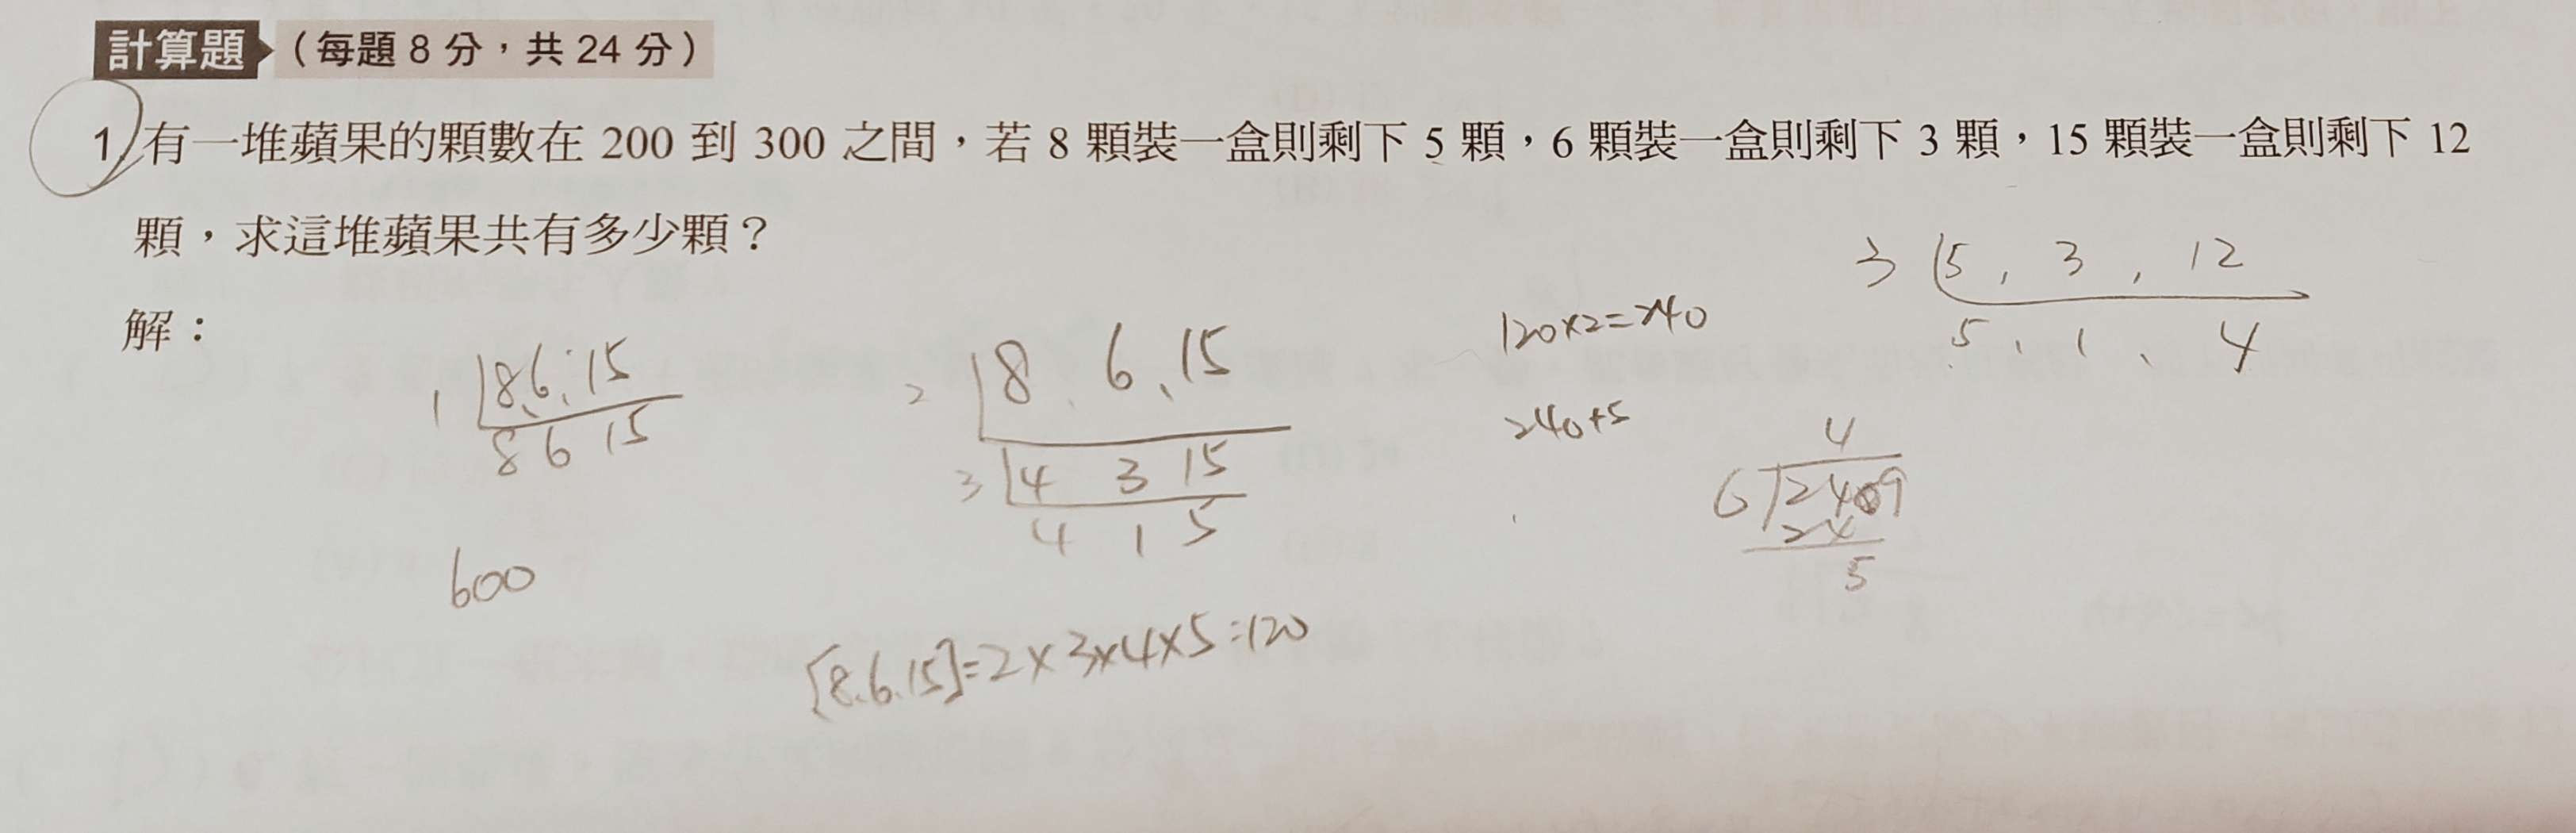 計算題 （每題 8 分，共 24 分）
1. 有一堆蘋果的顆數在 200 到 300 之間，若 8 顆裝一盒則剩下 5 顆，6 顆裝一盒則剩下 3 顆，15 顆裝一盒則剩下 12
顆，求這堆蘋果共有多少顆？
解：
1 8、6、15
8 6 15
600
2 8、6、15
3 4 3 15
4 1 5
[8.6.15]=2×3×4×5=120
120×2=240
240+5
3 5, 3, 12
5、1、4
4
6 24
24
5